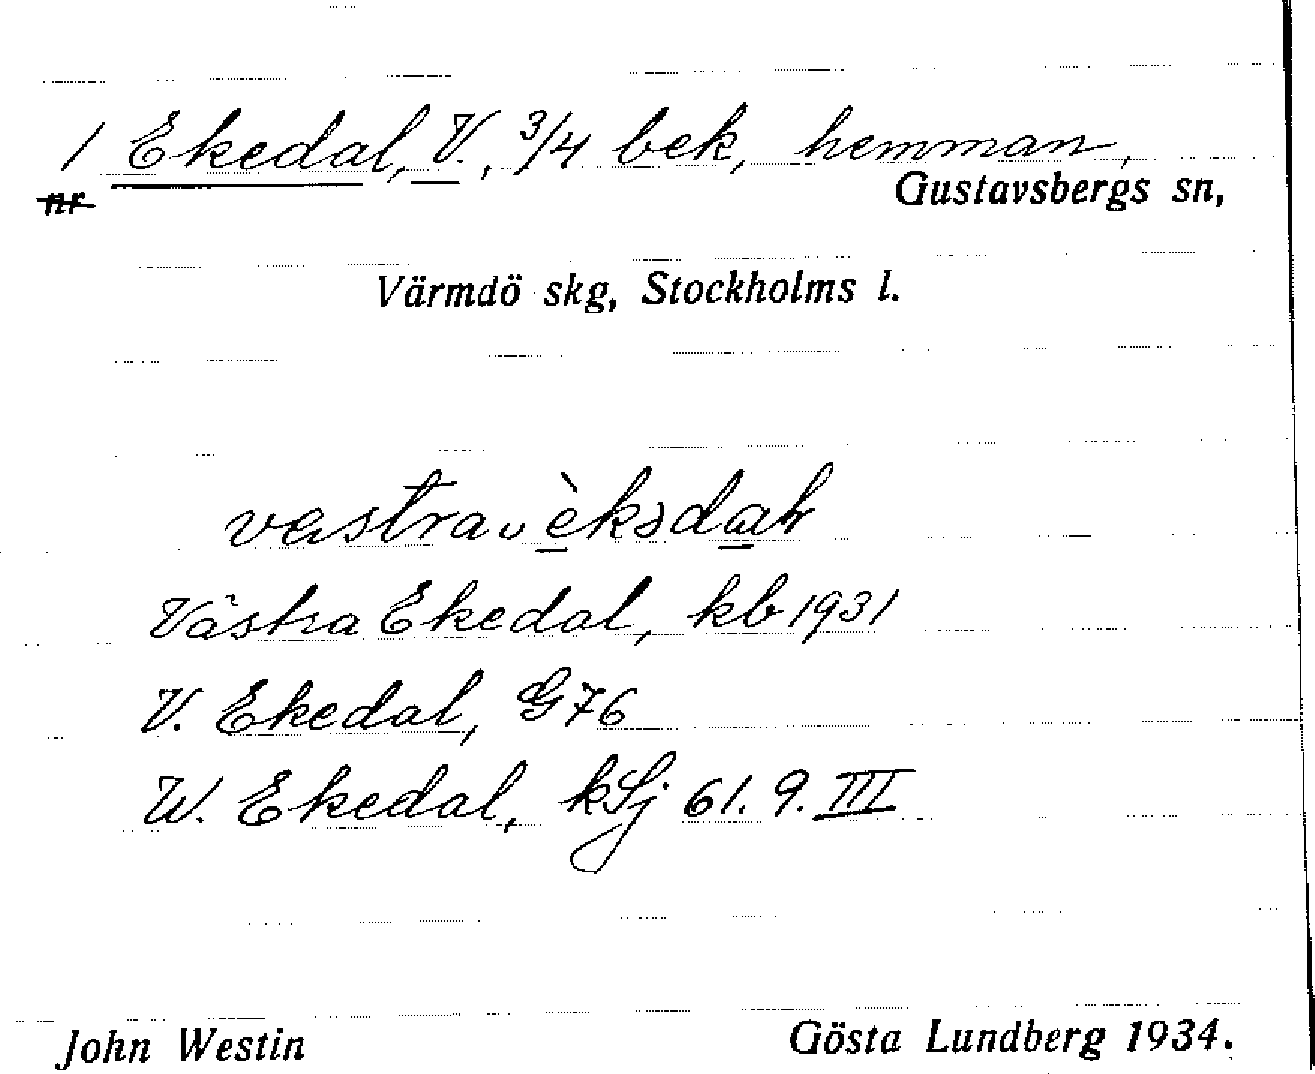 1 Ekedal, V., 3/4 bek, hemman,
nr
Gustavsbergs sn,
Värmdö skg, Stockholms l.
Västra Ekedal, kb 1931
V. Ekedal, G76
W. Ekedal, kSj 61. 9. III
John Westin
Gösta Lundberg 1934.